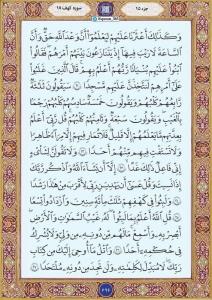 جزء ۱۵
سورة كهف ۱۸
وَكَذَٰلِكَ أَعْثَرْنَا عَلَيْهِمْ لِيَعْلَمُوٓا۟ أَنَّ وَعْدَ ٱللَّهِ حَقٌّ وَأَنَّ
ٱلسَّاعَةَ لَا رَيْبَ فِيهَآ إِذْ يَتَنَٰزَعُونَ بَيْنَهُمْ أَمْرَهُمْ فَقَالُوا۟
ٱبْنُوا۟ عَلَيْهِم بُنْيَٰنًا رَّبُّهُمْ أَعْلَمُ بِهِمْ قَالَ ٱلَّذِينَ غَلَبُوا۟
عَلَىٰٓ أَمْرِهِمْ لَنَتَّخِذَنَّ عَلَيْهِم مَّسْجِدًا ٢١ سَيَقُولُونَ ثَلَٰثَةٌ
رَّابِعُهُمْ كَلْبُهُمْ وَيَقُولُونَ خَمْسَةٌ سَادِسُهُمْ كَلْبُهُمْ رَجْمًۢا
بِٱلْغَيْبِ وَيَقُولُونَ سَبْعَةٌ وَثَامِنُهُمْ كَلْبُهُمْ قُل رَّبِّىٓ أَعْلَمُ
بِعِدَّتِهِم مَّا يَعْلَمُهُمْ إِلَّا قَلِيلٌ فَلَا تُمَارِ فِيهِمْ إِلَّا مِرَآءً ظَٰهِرًا
وَلَا تَسْتَفْتِ فِيهِم مِّنْهُمْ أَحَدًا ٢٢ وَلَا تَقُولَنَّ لِشَا۟ىْءٍ
إِنِّى فَاعِلٌ ذَٰلِكَ غَدًا ٢٣ إِلَّآ أَن يَشَآءَ ٱللَّهُ وَٱذْكُر رَّبَّكَ
إِذَا نَسِيتَ وَقُلْ عَسَىٰٓ أَن يَهْدِيَنِ رَبِّى لِأَقْرَبَ مِنْ هَٰذَا رَشَدًا
٢٤ وَلَبِثُوا۟ فِى كَهْفِهِمْ ثَلَٰثَ مِا۟ئَةٍ سِنِينَ وَٱزْدَادُوا۟ تِسْعًا
٢٥ قُلِ ٱللَّهُ أَعْلَمُ بِمَا لَبِثُوا۟ لَهُۥ غَيْبُ ٱلسَّمَٰوَٰتِ وَٱلْأَرْضِ
أَبْصِرْ بِهِۦ وَأَسْمِعْ مَا لَهُم مِّن دُونِهِۦ مِن وَلِىٍّ وَلَا يُشْرِكُ
فِى حُكْمِهِۦٓ أَحَدًا ٢٦ وَٱتْلُ مَآ أُوحِىَ إِلَيْكَ مِن كِتَابِ
رَبِّكَ لَا مُبَدِّلَ لِكَلِمَٰتِهِۦ وَلَن تَجِدَ مِن دُونِهِۦ مُلْتَحَدًا ٢٧
٢٩٦